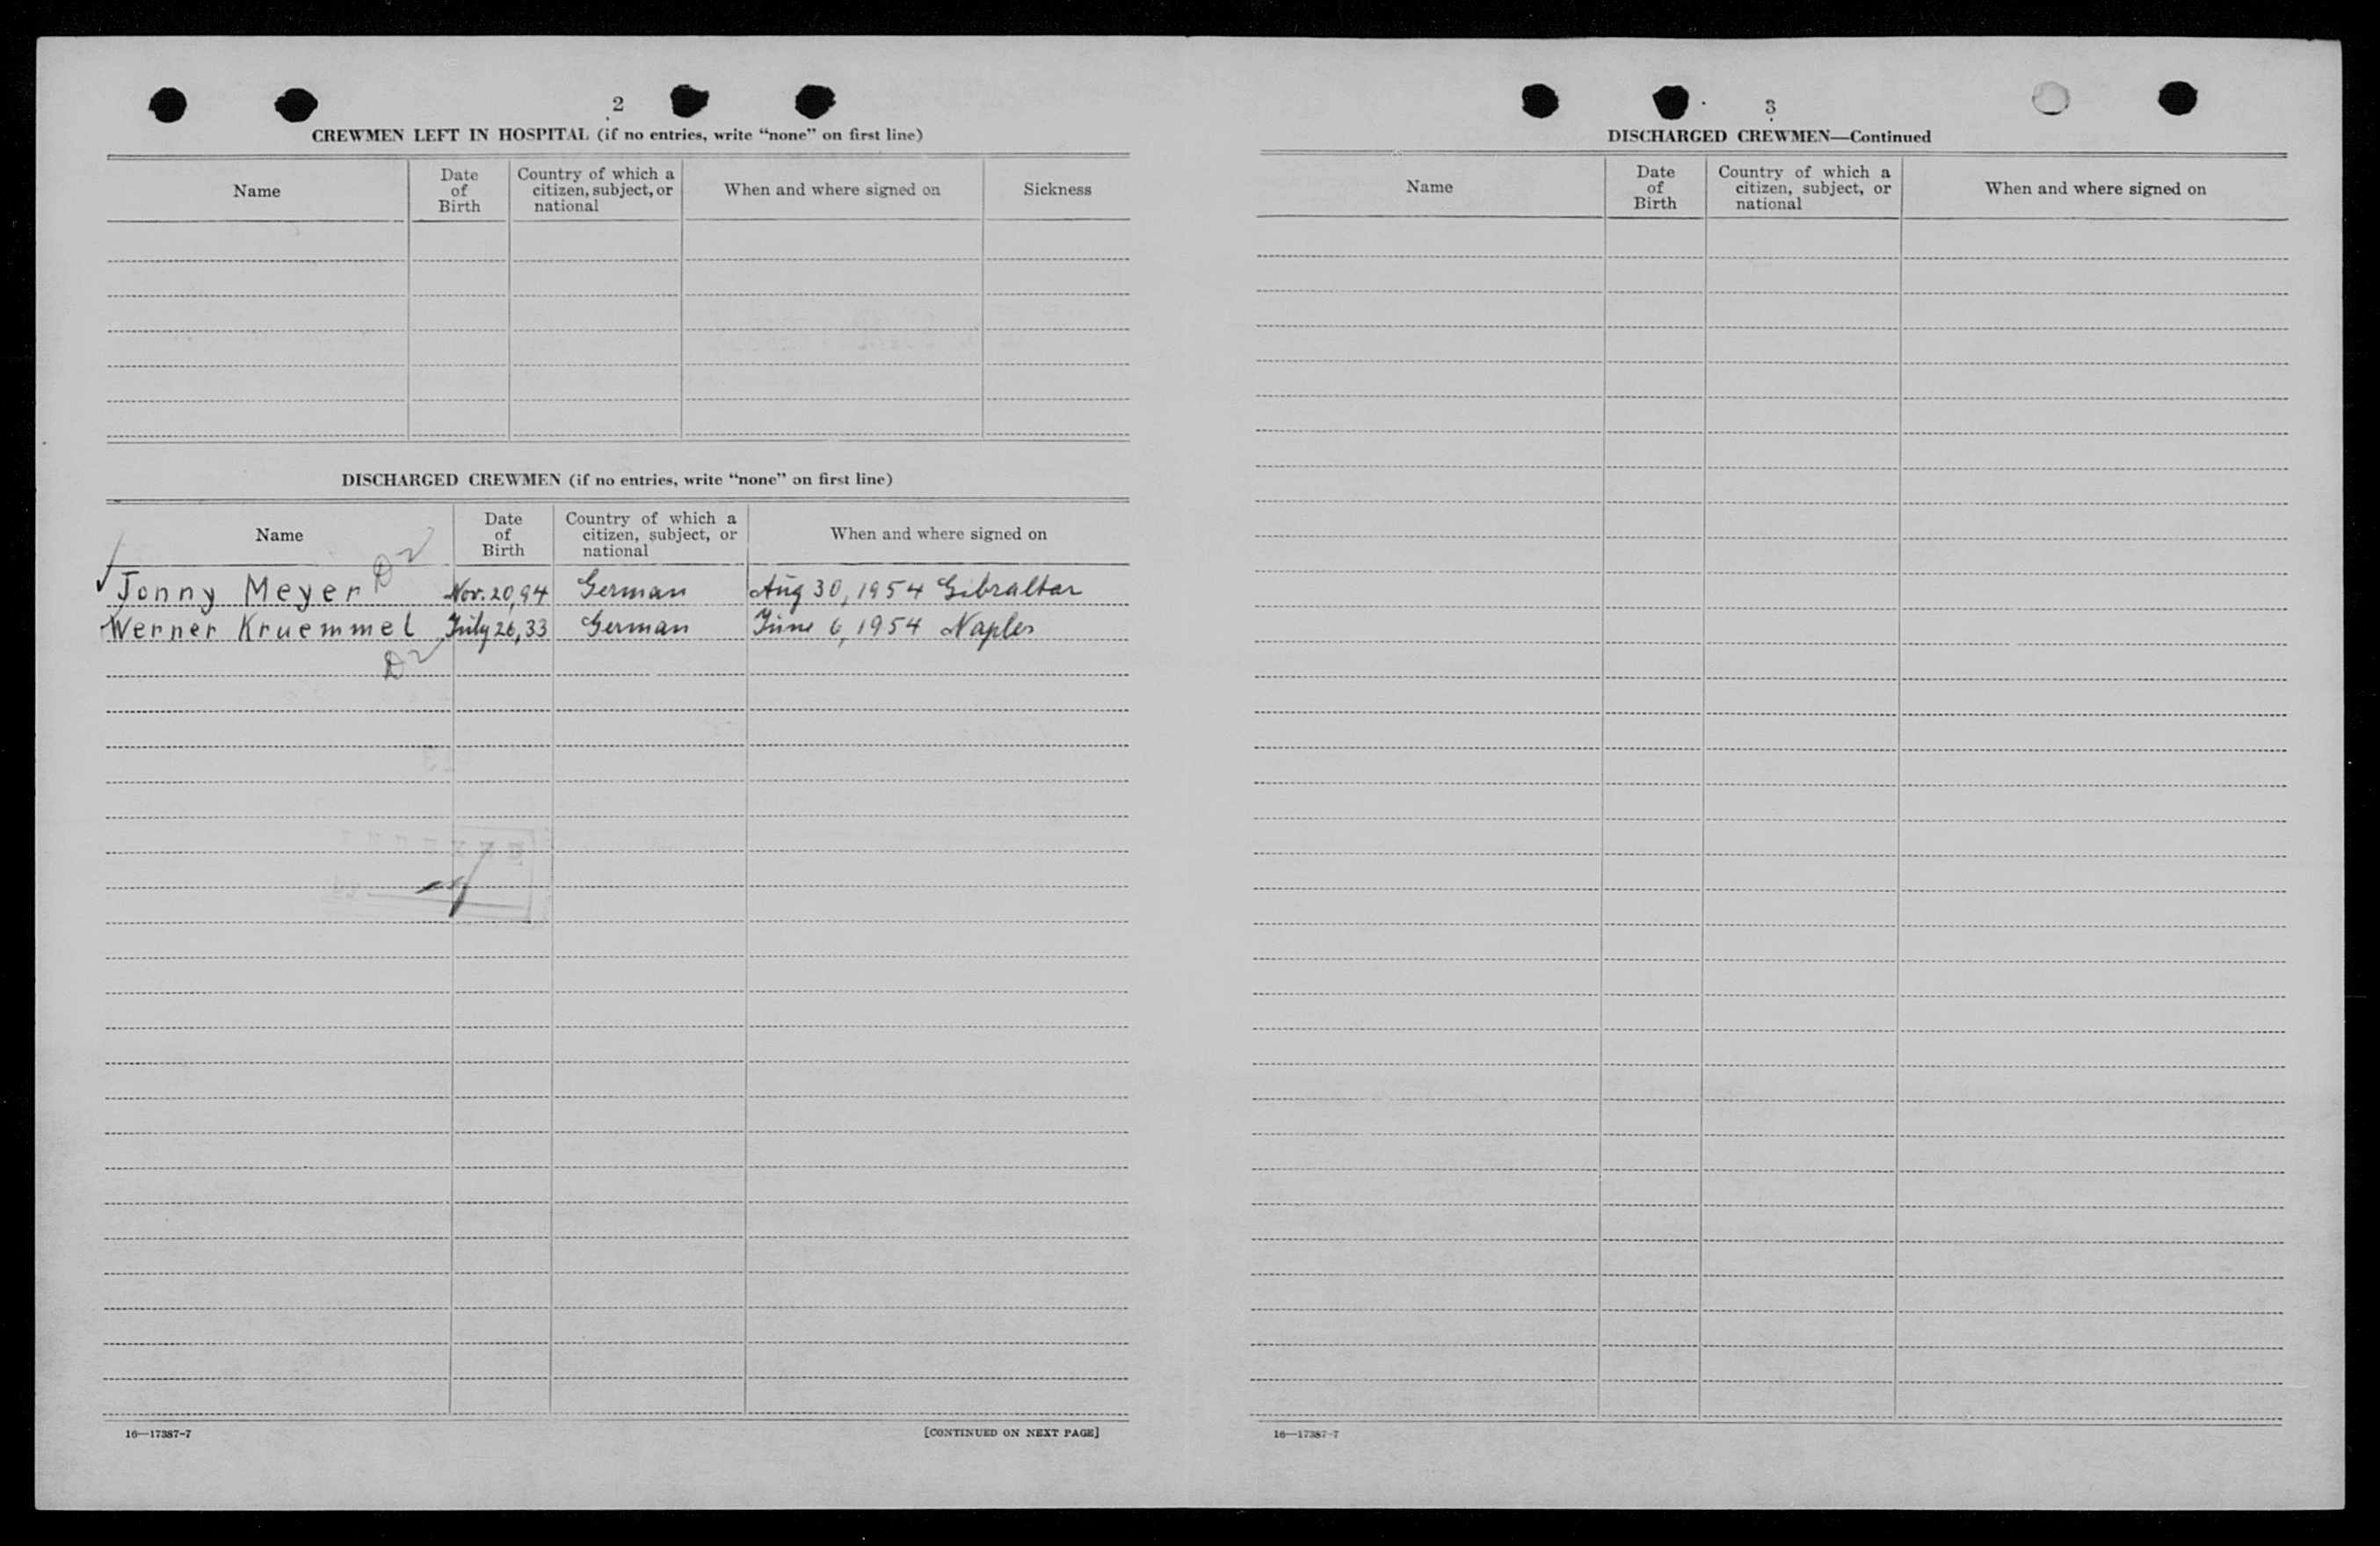 2
CREWMEN LEFT IN HOSPITAL (if no entries, write “none” on first line)
Name
Date of Birth
Country of which a citizen, subject, or national
When and where signed on
Sickness
DISCHARGED CREWMEN (if no entries, write “none” on first line)
Name
Date of Birth
Country of which a citizen, subject, or national
When and where signed on
Jonny Meyer D2 Nov. 20, 94 German Aug 30, 1954 Gibraltar
Werner Kruemmel July 26, 33 German June 6, 1954 Naples
D2
16—17387-7
[CONTINUED ON NEXT PAGE]
3
DISCHARGED CREWMEN—Continued
Name
Date of Birth
Country of which a citizen, subject, or national
When and where signed on
16—17387-7